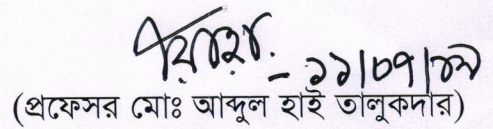 ১১।০৭।১৭
(প্রফেসর মোঃ আব্দুল হাই তালুকদার)